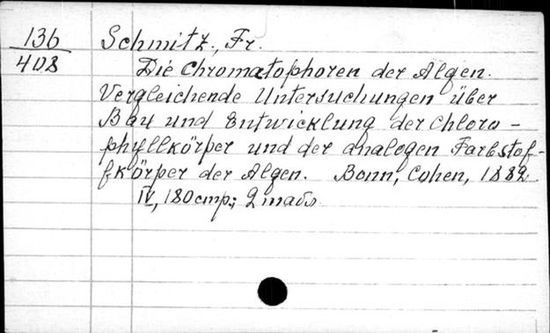 136 Schmitz., Fr.
408 Die Chromatophoren der Algen.
Vergleichende Untersuchungen über
Bau und Entwicklung der Chloro-
phyllkörper und der analogen Farbstof-
fkörper der Algen. Bonn, Cohen, 1882
IV, 180 стр; 2